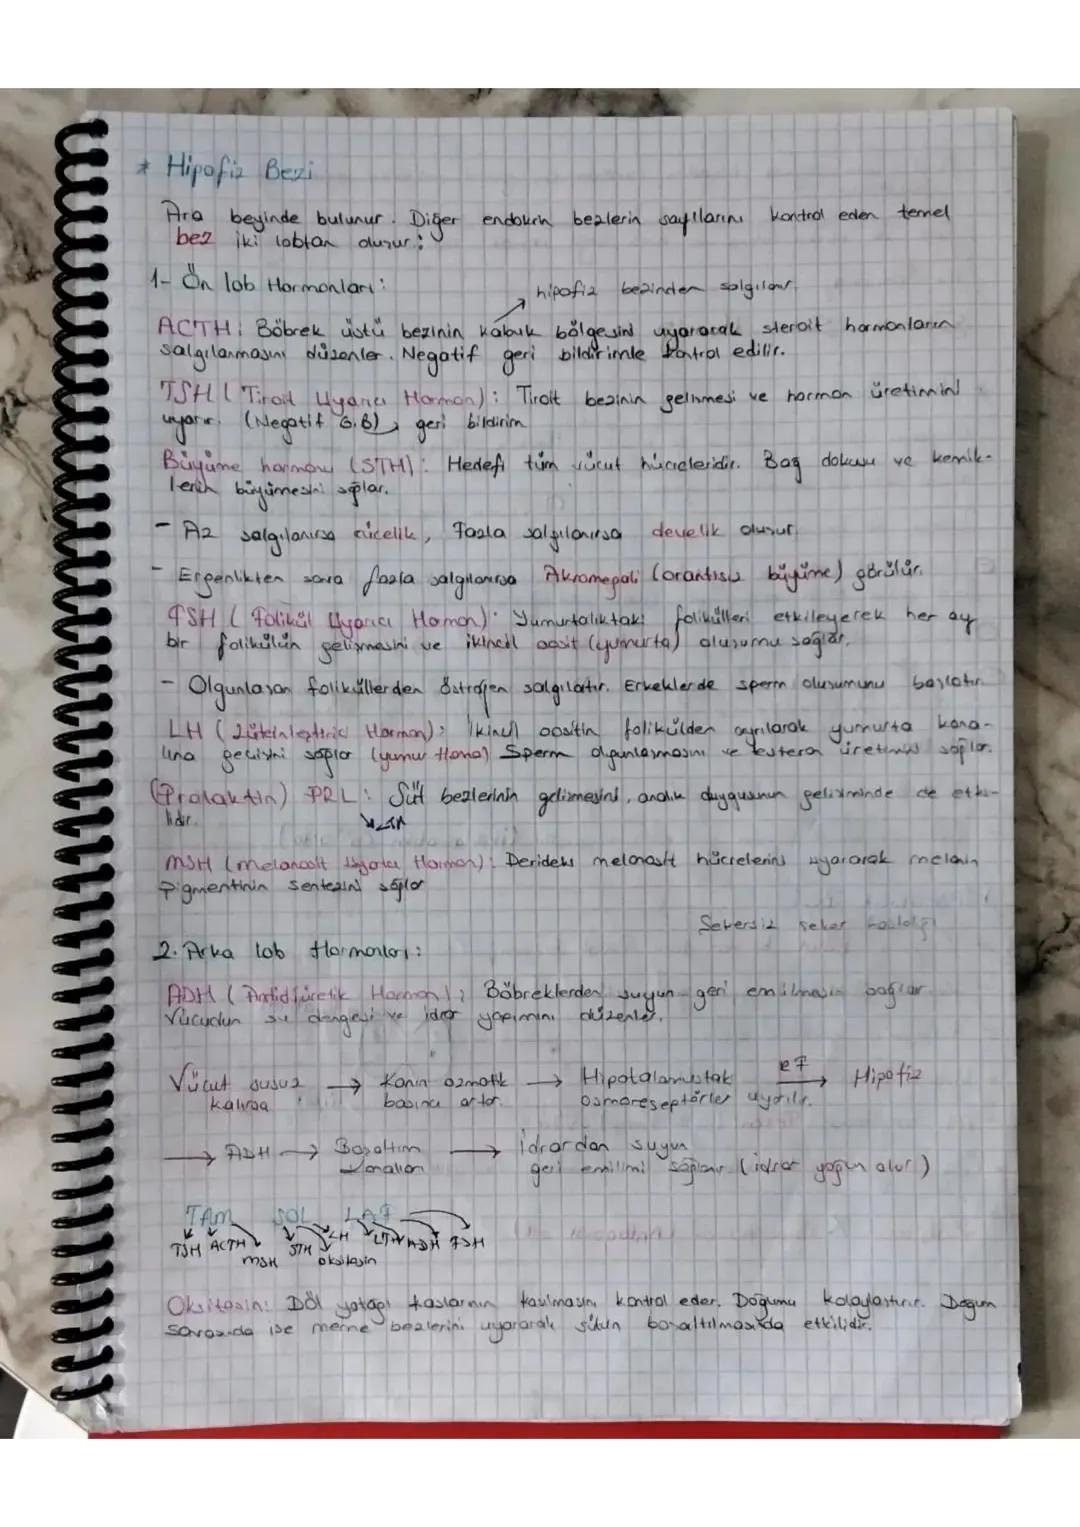 * Hipofiz Bezi
Ara beyinde bulunur. Diğer endokrin bezlerin sayılarını kontrol eden temel
bez iki lobtan oluşur:
1- Ön lob Hormonları:
hipofiz bezinden salgılanır.
ACTH: Böbrek üstü bezinin kabuk bölgesini uyararak steroit hormonların
salgılanmasını düzenler. Negatif geri bildirimle kontrol edilir.
TSH (Tiroit Uyarıcı Hormon): Tiroit bezinin gelişmesi ve hormon üretimini
uyarır. (Negatif G.B) geri bildirim
Büyüme hormonu (STH): Hedefi tüm vücut hücreleridir. Bağ dokusu ve kemik-
lerin büyümesini sağlar.
- Az salgılanırsa cücelik, Fazla salgılanırsa develik oluşur.
- Ergenlikten sonra fazla salgılanırsa Akromegali (orantısız büyüme) görülür.
FSH (Folikül Uyarıcı Hormon): Yumurtalıktaki folikülleri etkileyerek her ay
bir folikülün gelişmesini ve ikincil oosit (yumurta) oluşumu sağlar.
- Olgunlaşan foliküllerden östrojen salgılatır. Erkeklerde sperm oluşumunu başlatır.
LH (Lüteinleştirici Hormon): İkincil oositin folikülden ayrılarak yumurta kana-
lına geçişini sağlar Sperm olgunlaşmasını ve üretimini sağlar.
(Prolaktin) PRL: Süt bezlerinin gelişmesini, analık duygusunun gelişiminde de etki-
lidir.
LTH
MSH (Melanosit Uyarıcı Hormon): Derideki melanosit hücrelerini uyararak melanin
pigmentinin sentezini sağlar
Şekersiz şeker hastalığı
2. Arka lob Hormonları:
ADH (Antidiüretik Hormon): Böbreklerden suyun geri emilmesin sağlar.
Vücudun su dengesi ve idrar yapımını düzenler.
Vücut susuz → Kanın ozmotik → Hipotalamustaki → Hipofiz
kalırsa basıncı artar. osmoreseptörler uyarılır.
→ ADH → Boşaltım → İdrardan suyun
kanalları geri emilimi sağlanır (idrar yoğun olur)
TAM SOL LAF
TSH ACTH MSH STH oksitosin LH LTH ADH FSH
Oksitosin: Döl yatağı kaslarının kasılmasını kontrol eder. Doğumu kolaylaştırır. Doğum
sonrasında ise meme bezlerini uyararak sütün boşaltılmasında etkilidir.